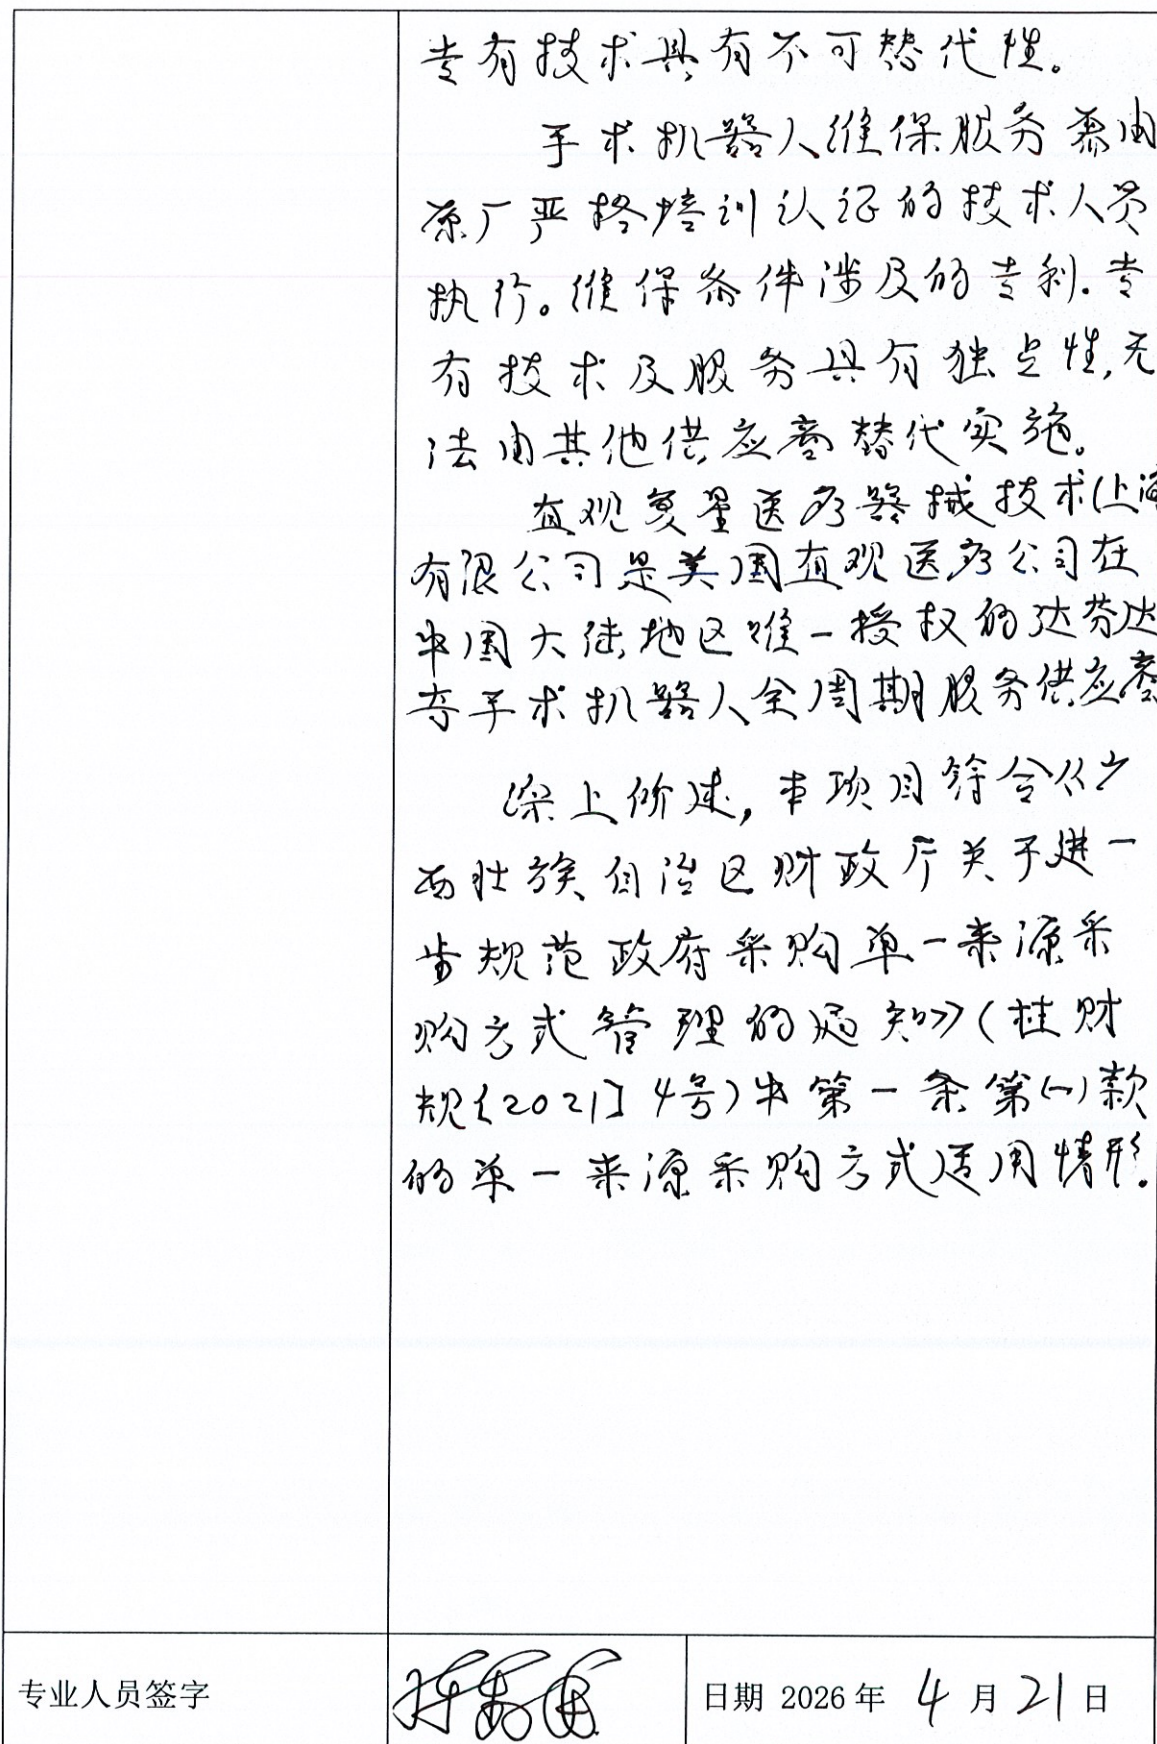 专有技术具有不可替代性。
手术机器人维保服务需由
原厂严格培训认证的技术人员
执行。维保条件涉及的专利.专
有技术及服务具有独占性,无
法由其他供应商替代实施。
直观复星医疗器械技术(上海
有限公司是美国直观医疗公司在
中国大陆地区唯一授权的达芬达
奇手术机器人全周期服务供应商
综上所述,本项目符合《广
西壮族自治区财政厅关于进一
步规范政府采购单一来源采
购方式管理的通知》(桂财
规〔2021〕4号)中第一条第(一)款
的单一来源采购方式适用情形.
专业人员签字
日期 2026年 4月21日